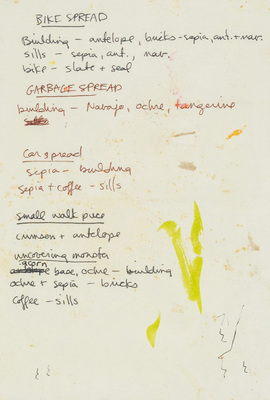 BIKE SPREAD
Building - antelope, bricks - sepia, ant. + nav.
sills - sepia, ant., nav.
bike - slate + seal
GARBAGE SPREAD
building - Navajo, ochre, tangerine
Car spread
sepia - building
sepia + coffee - sills
small walk piece
crimson + antelope
uncovering monota
acorn
base, ochre - building
ochre + sepia - bricks
Coffee - sills